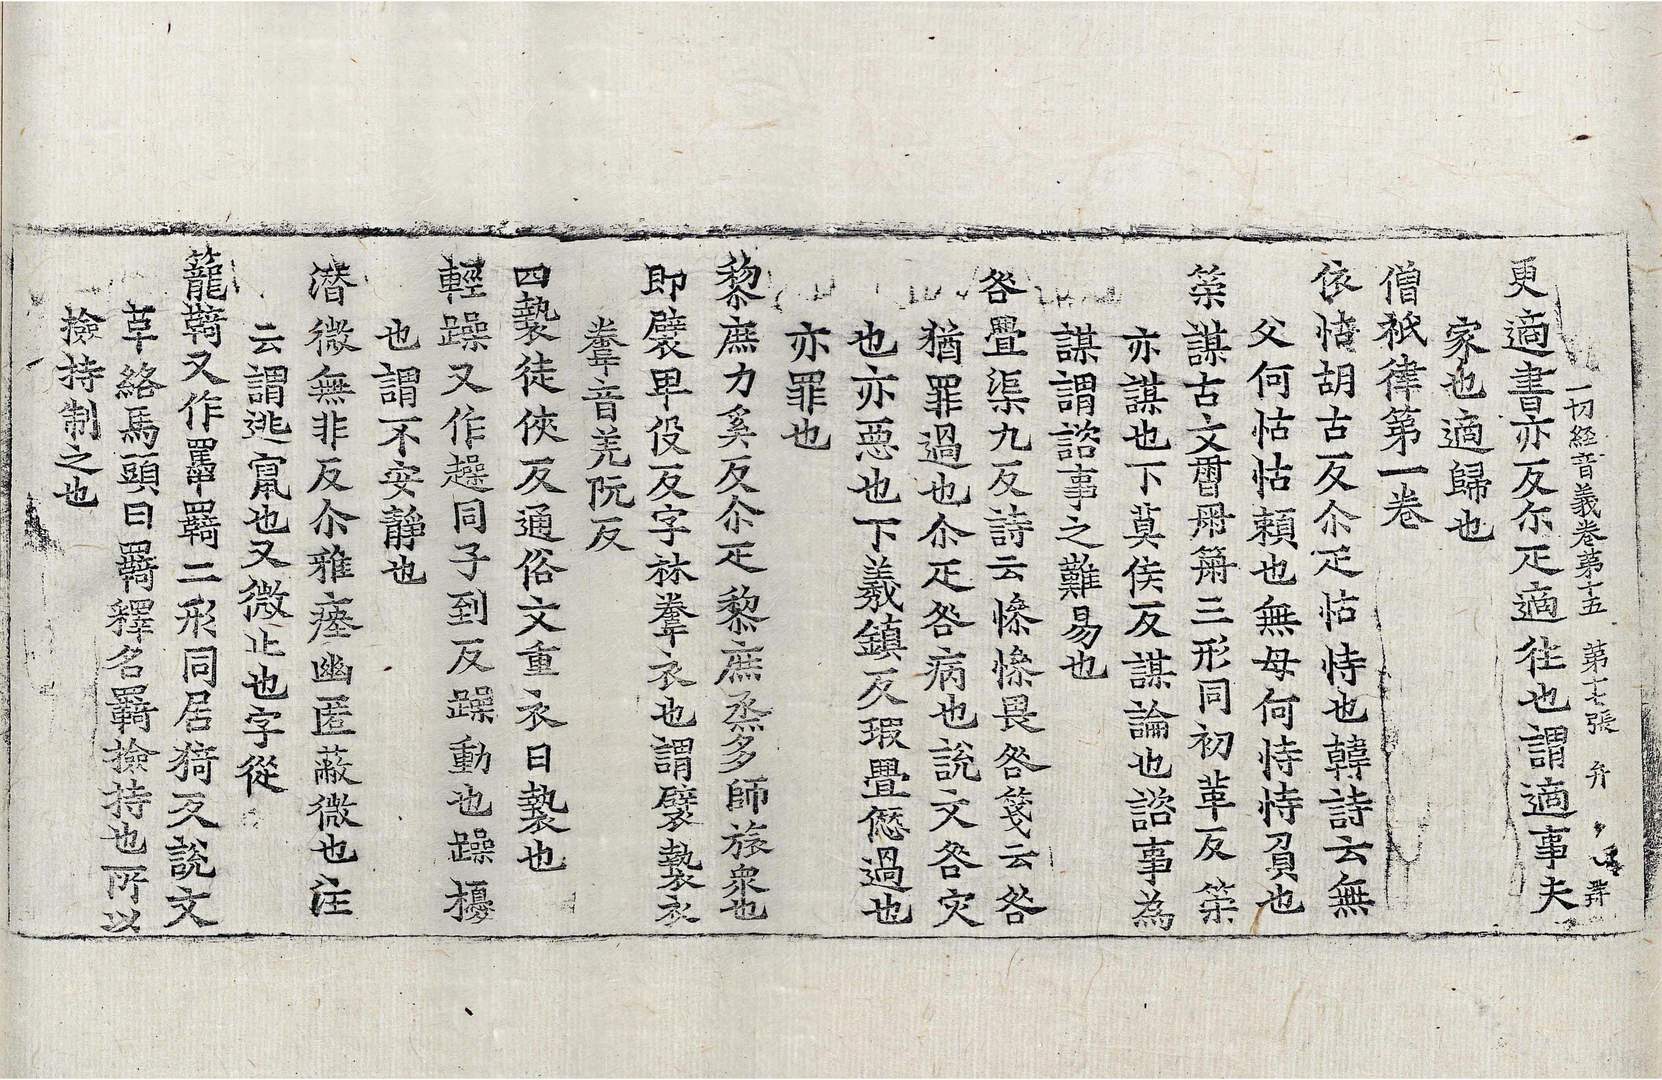 一切経音義卷第十五 第十七張 弁
更適書亦反尒疋適往也謂適事夫
家也適歸也
僧祇律第一卷
依怙胡古反尒疋怙恃也韓詩云無
父何怙怙頼也無母何恃恃負也
筞謀古文𠕋𠕋筞三形同初革反筞
亦謀也下莫侯反謀論也諮事為
謀謂諮事之難易也
咎疊渠九反詩云慘慘畏咎箋云咎
猶罪過也尒疋咎病也說文咎灾
也亦惡也下羲鎮反瑕疊𠍴過也
亦罪也
黎庶力奚反尒疋黎庶烝多師旅衆也
即襞卑役反字林韏衣也謂襞褺衣
韏音羌阮反
四褺徒俠反通俗文重衣曰褺也
輕躁又作趮同子到反躁動也躁擾
也謂不安静也
潛微無非反尒雅瘞幽匿蔽微也注
云謂逃竄也又微止也字從
籠羇又作羈羇二形同居猗反説文
草絡馬頭曰羇釋名羇撿持也所以
撿持制之也